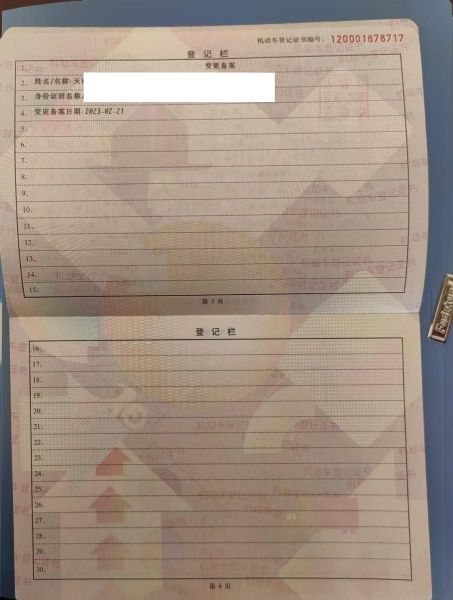 机动车登记证书编号: 120001878717
登记栏
1. 变更备案
2. 姓名/名称:天
3. 身份证明名称
4. 变更备案日期:2023-02-21
5.
6.
7.
8.
9.
10.
11.
12.
13.
14.
15.
第 3 页
登记栏
16.
17.
18.
19.
20.
21.
22.
23.
24.
25.
26.
27.
28.
29.
30.
第 4 页